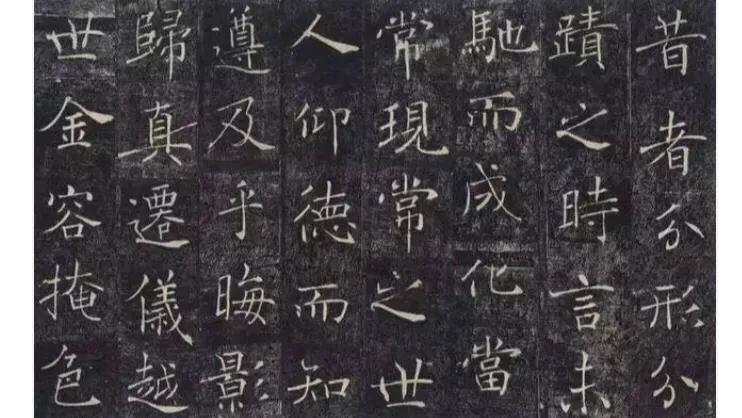 昔者分形分
蹟之時言未
馳而成化當
常現常之世
人仰德而知
遵及乎晦影
歸真遷儀越
世金容掩色